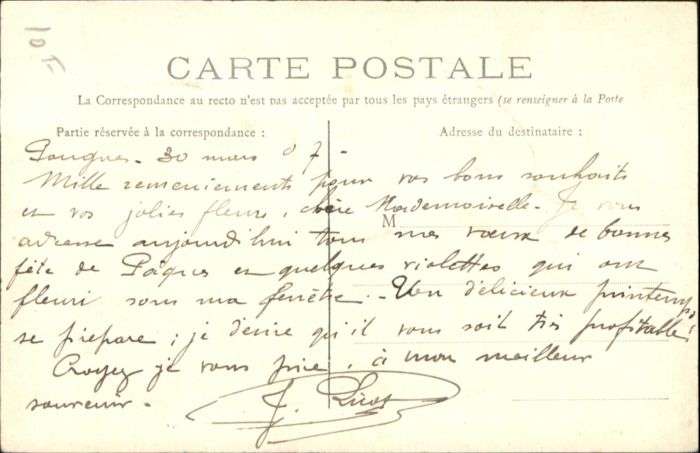 CARTE POSTALE
La Correspondance au recto n'est pas acceptée par tous les pays étrangers (se renseigner à la Porte
Partie réservée à la correspondance :
Adresse du destinataire :
Pougues. 30 mars 07 -
Mille remerciements pour vos bons souhaits
et vos jolies fleurs, chère Mademoiselle. Je vous
M
adresse aujourd'hui tous mes vœux de bonne
fête de Pâques et quelques violettes qui ont
fleuri sous ma fenêtre. Un délicieux printemps
se prépare ; je désire qu'il vous soit très profitable !
Croyez je vous prie, à mon meilleur
souvenir.
J.